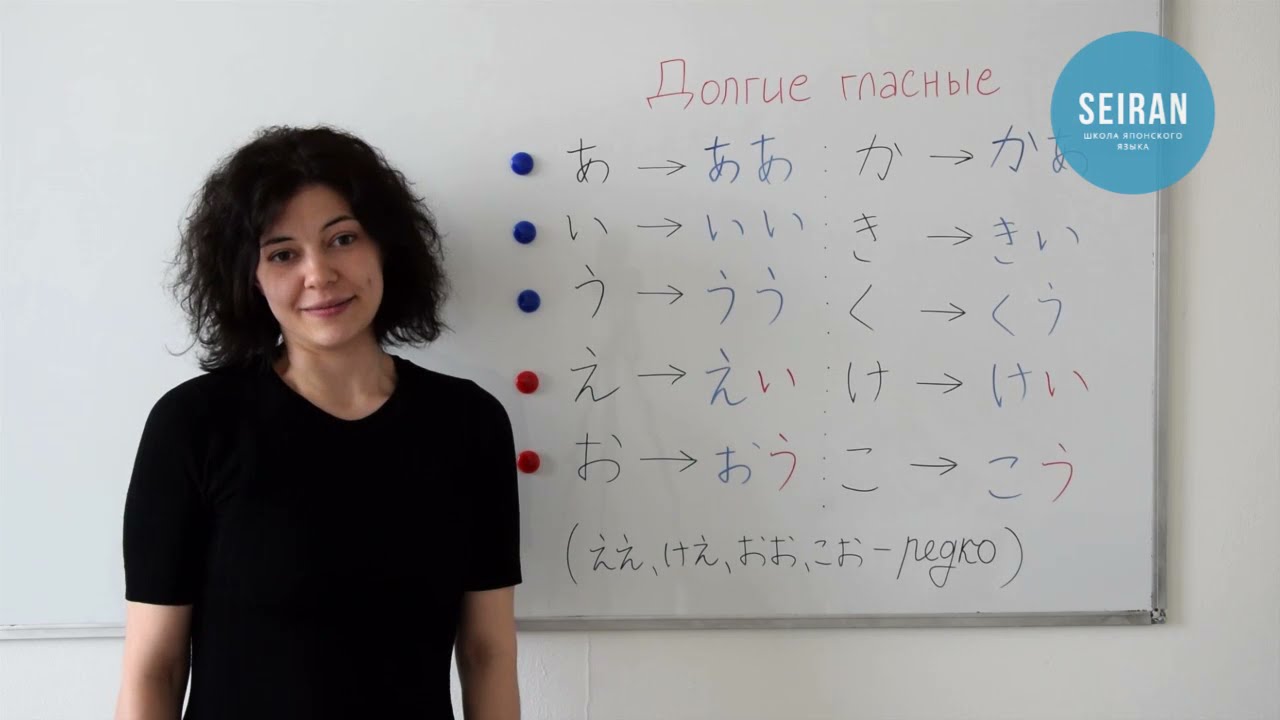 Долгие гласные
SEIRAN
ШКОЛА ЯПОНСКОГО
ЯЗЫКА
あ → ああ か → かあ
い → いい き → きい
う → うう く → くう
え → えい け → けい
お → おう こ → こう
(ええ、けえ、おお、こお – редко)